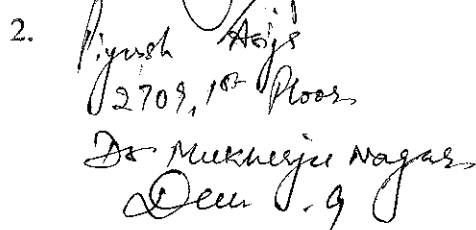 2. Piyush
2709, 1st Floor
Dr Mukherjee Nagar
Delhi - 9